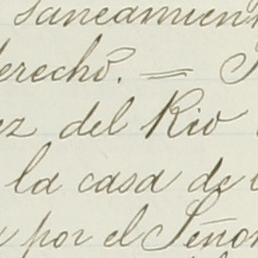 saneamien
derecho. =
ez del Rio
la casa de
por el Señor